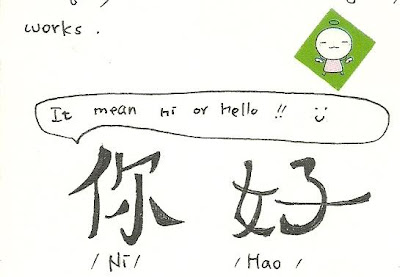 works.
It mean Hi or Hello !!
你 好
/Ni/ /Hao/